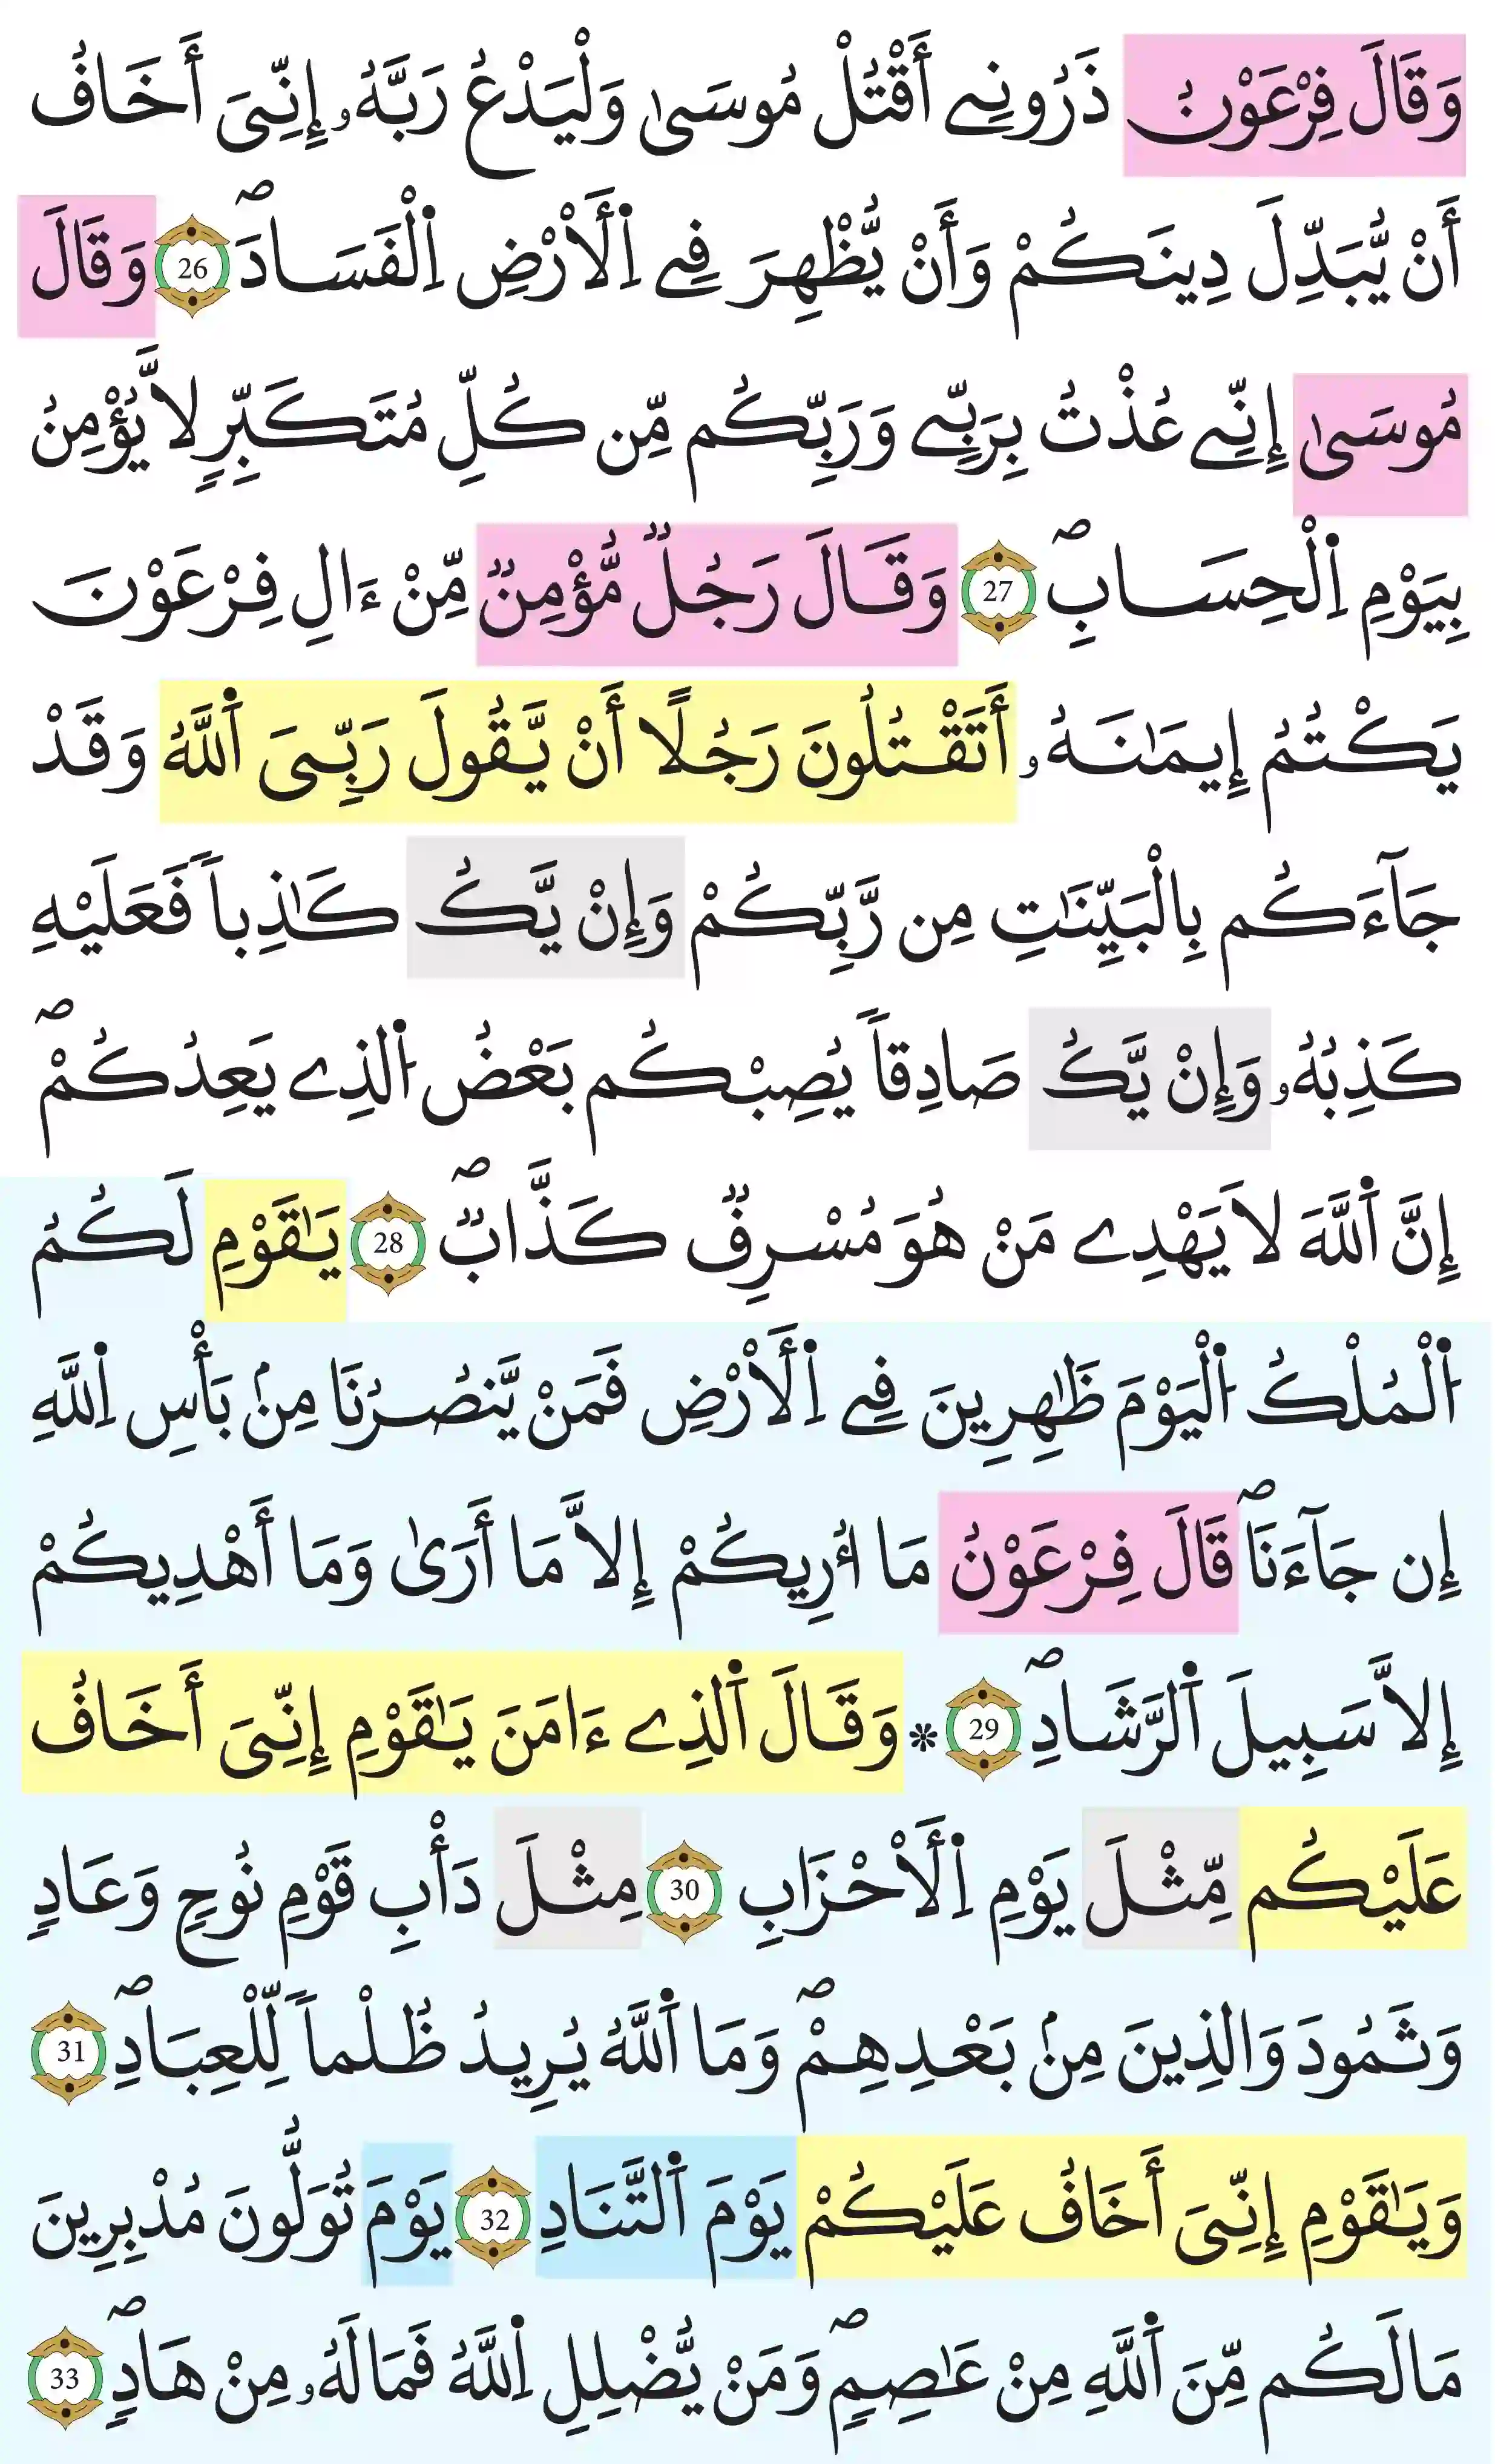 وَقَالَ فِرْعَوْنُ ذَرُونِے أَقْتُلْ مُوسَىٰ وَلْيَدْعُ رَبَّهُۥ إِنِّىَ أَخَافُ
أَنْ يُّبَدِّلَ دِينَكُمْ وَأَنْ يُّظْهِرَ فِے اِ۬لَارْضِ اِ۬لْفَسَادَۖ 26 وَقَالَ
مُوسَىٰ إِنِّے عُذْتُ بِرَبِّے وَرَبِّكُم مِّن كُلِّ مُتَكَبِّرٍ لَّا يُؤْمِنُ
بِيَوْمِ اِ۬لْحِسَابِۖ 27 وَقَالَ رَجُلٌ مُّؤْمِنٌ مِّنْ ءَالِ فِرْعَوْنَ
يَكْتُمُ إِيمَٰنَهُۥ أَتَقْتُلُونَ رَجُلًا أَنْ يَّقُولَ رَبِّىَ اَ۬للَّهُ وَقَدْ
جَآءَكُم بِالْبَيِّنَٰتِ مِن رَّبِّكُمْ وَإِنْ يَّكُ كَٰذِباً فَعَلَيْهِ
كَذِبُهُۥ وَإِنْ يَّكُ صَادِقاً يُصِبْكُم بَعْضُ اُ۬لذِے يَعِدُكُمْۖ
إِنَّ اَ۬للَّهَ لَا يَهْدِے مَنْ هُوَ مُسْرِفٌ كَذَّابٌۖ 28 يَٰقَوْمِ لَكُمُ
اُ۬لْمُلْكُ اُ۬لْيَوْمَ ظَٰهِرِينَ فِے اِ۬لَارْضِ فَمَنْ يَّنصُرُنَا مِنۢ بَأْسِ اِ۬للَّهِ
إِن جَآءَنَاۖ قَالَ فِرْعَوْنُ مَا أُرِيكُمْ إِلَّا مَا أَرَىٰ وَمَا أَهْدِيكُمْ
إِلَّا سَبِيلَ اَ۬لرَّشَادِۖ 29 * وَقَالَ اَ۬لذِے ءَامَنَ يَٰقَوْمِ إِنِّىَ أَخَافُ
عَلَيْكُم مِّثْلَ يَوْمِ اِ۬لَاحْزَابِ 30 مِثْلَ دَأْبِ قَوْمِ نُوحٍ وَعَادٍ
وَثَمُودَ وَالذِينَ مِنۢ بَعْدِهِمْۖ وَمَا اَ۬للَّهُ يُرِيدُ ظُلْماً لِّلْعِبَادِۖ 31
وَيَٰقَوْمِ إِنِّىَ أَخَافُ عَلَيْكُمْ يَوْمَ اَ۬لتَّنَادِ 32 يَوْمَ تُوَلُّونَ مُدْبِرِينَ
مَا لَكُم مِّنَ اَ۬للَّهِ مِنْ عَاصِمٍۖ وَمَنْ يُّضْلِلِ اِ۬للَّهُ فَمَا لَهُۥ مِنْ هَادٍۖ 33